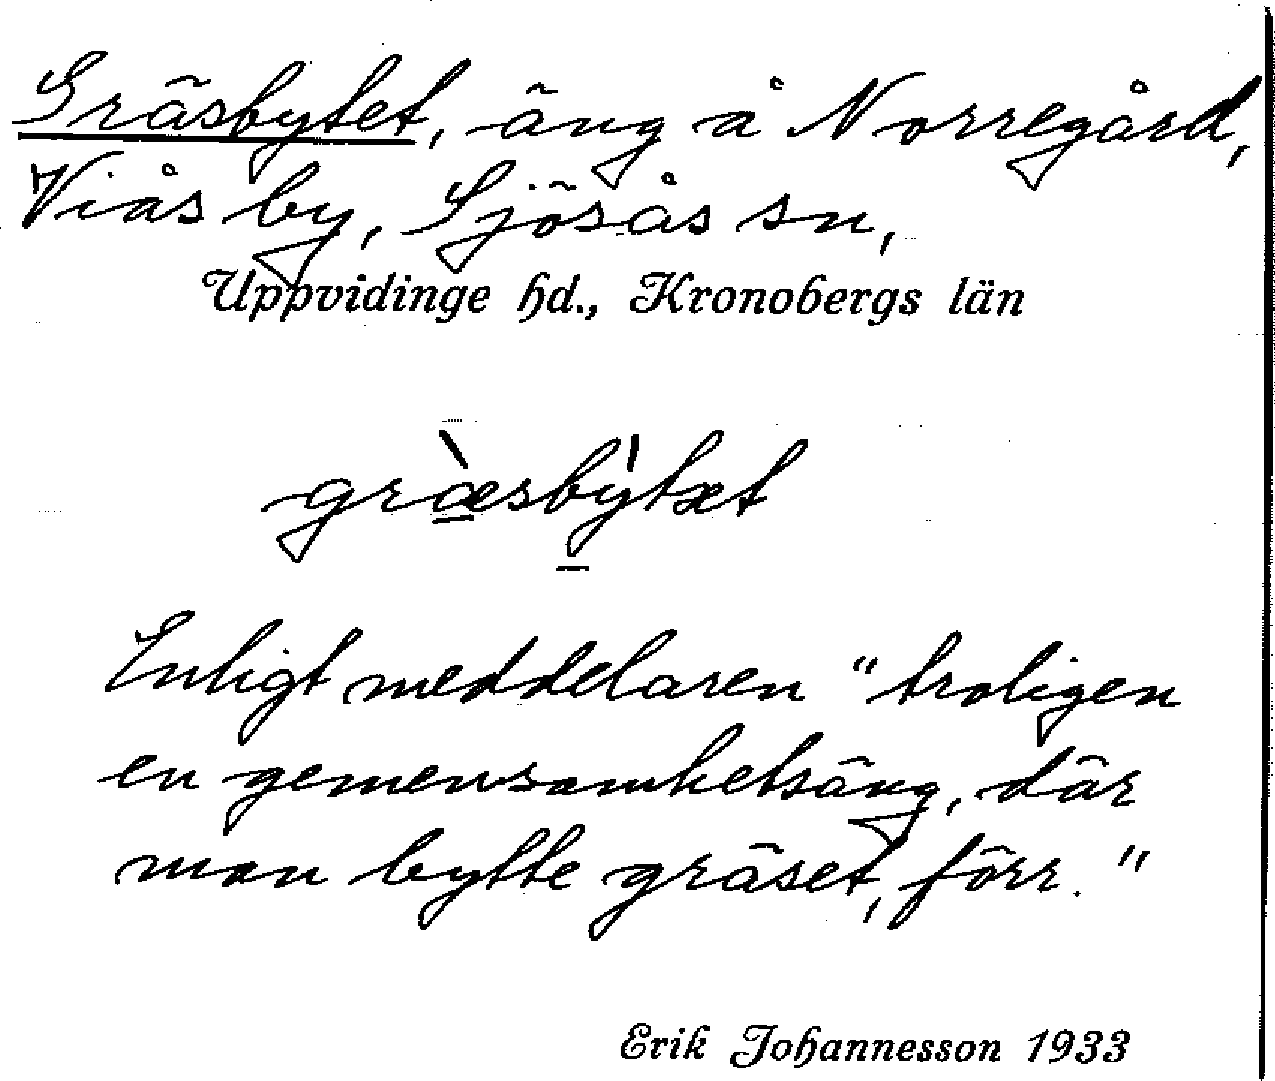 Gräsbytet, äng å Norregård,
Viås by, Sjösås sn,
Uppvidinge hd., Kronobergs län
græ̀sby̍tæt
Enligt meddelaren "troligen
en gemensamhetsäng, där
man bytte gräset, förr."
Erik Johannesson 1933